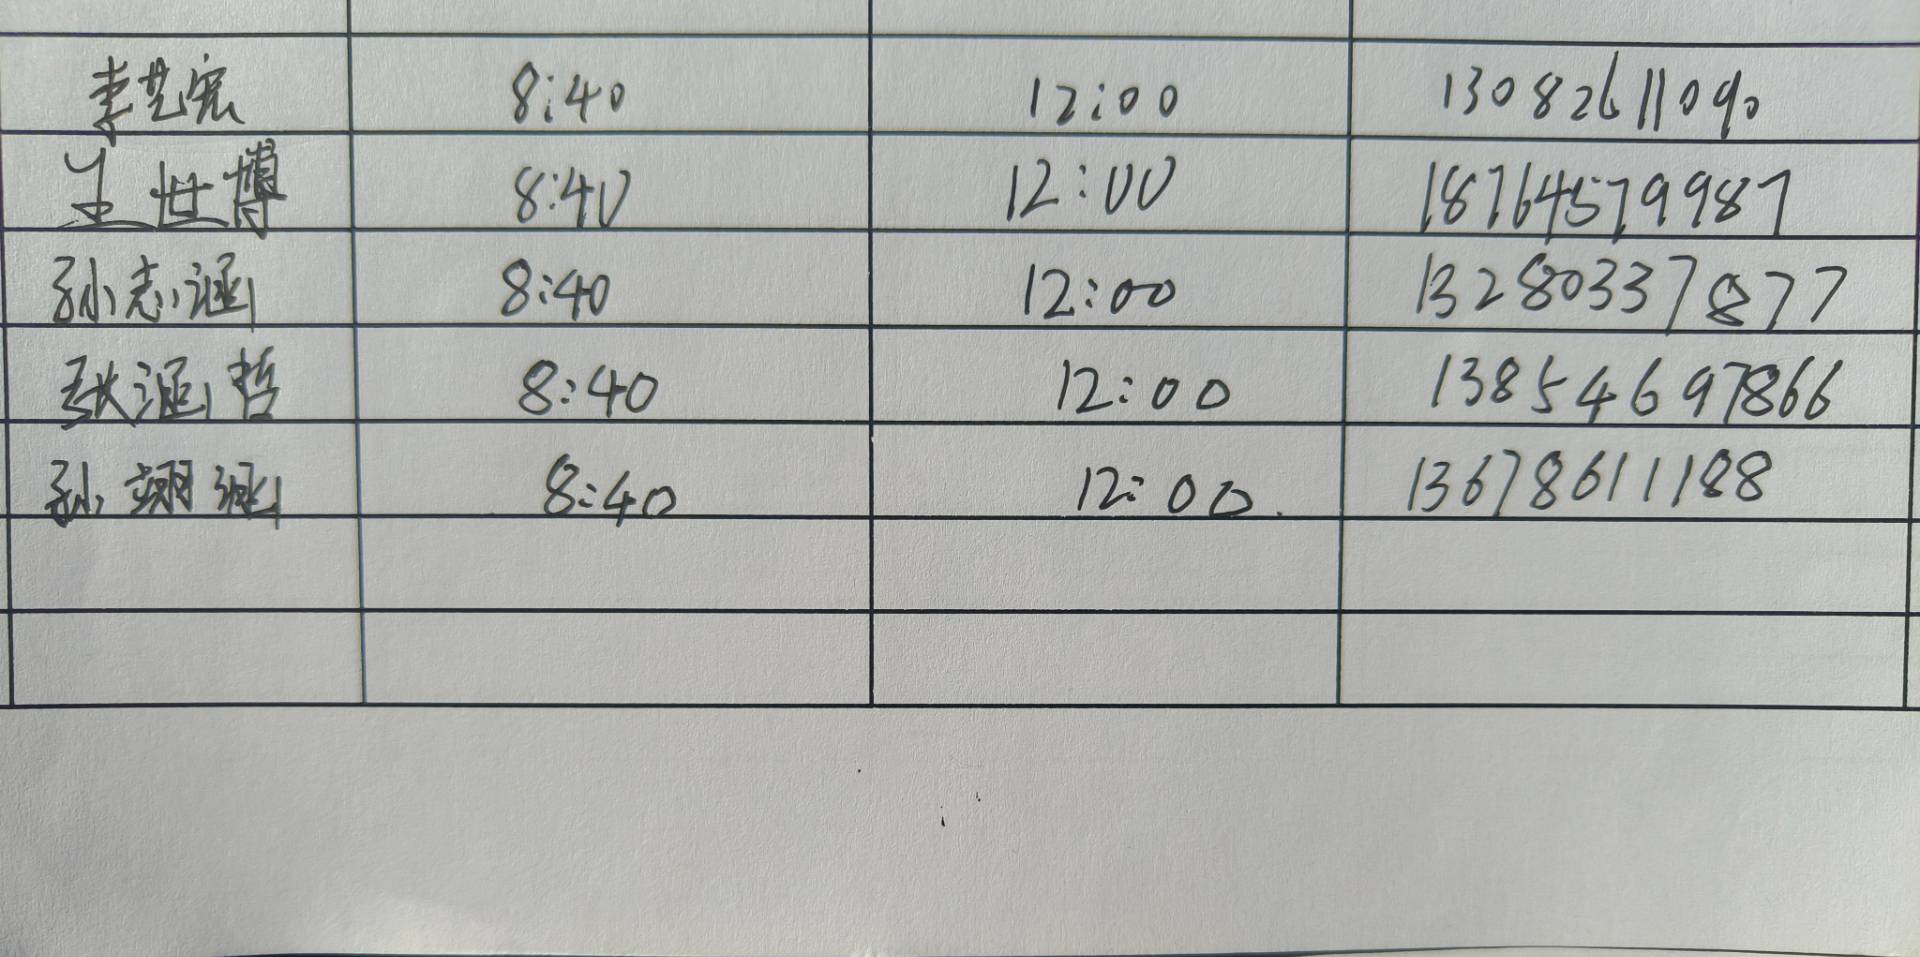 李艺宸 8:40 12:00 13082611090
王世博 8:40 12:00 18764579987
孙志涵 8:40 12:00 13280337877
张涵哲 8:40 12:00 13854697866
孙翊涵 8:40 12:00 13678611188